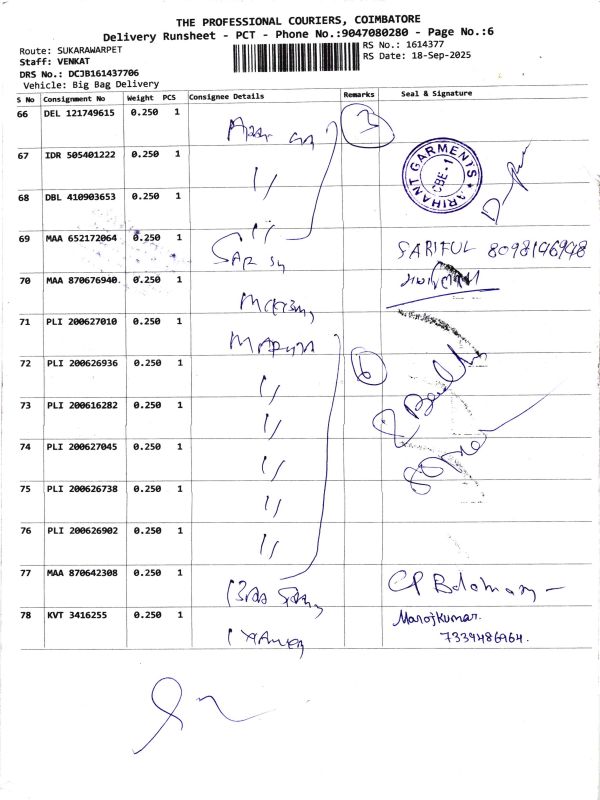 THE PROFESSIONAL COURIERS, COIMBATORE
Delivery Runsheet - PCT - Phone No.:9047080280 - Page No.:6
Route: SUKARAWARPET
RS No.: 1614377
Staff: VENKAT
RS Date: 18-Sep-2025
DRS No.: DCJB161437706
Vehicle: Big Bag Delivery
S No Consignment No Weight PCS Consignee Details Remarks Seal & Signature
66 DEL 121749615 0.250 1 3
67 IDR 505401222 0.250 1 〃
ARIHANT GARMENTS ★ CBE-1 ★
68 DBL 410903653 0.250 1 〃
69 MAA 652172064 0.250 1 SARIFUL 8098146948
70 MAA 870676940. 0.250 1
71 PLI 200627010 0.250 1
72 PLI 200626936 0.250 1 〃 6
73 PLI 200616282 0.250 1 〃
74 PLI 200627045 0.250 1 〃
75 PLI 200626738 0.250 1 〃
76 PLI 200626902 0.250 1 〃
77 MAA 870642308 0.250 1
78 KVT 3416255 0.250 1 Manojkumar.
7339486964.